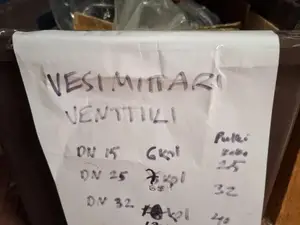 VESIMITTARI
VENTTIILI
Putki
koko
DN 15 6 kpl 25
DN 25 kpl 32
DN 32 kpl 40